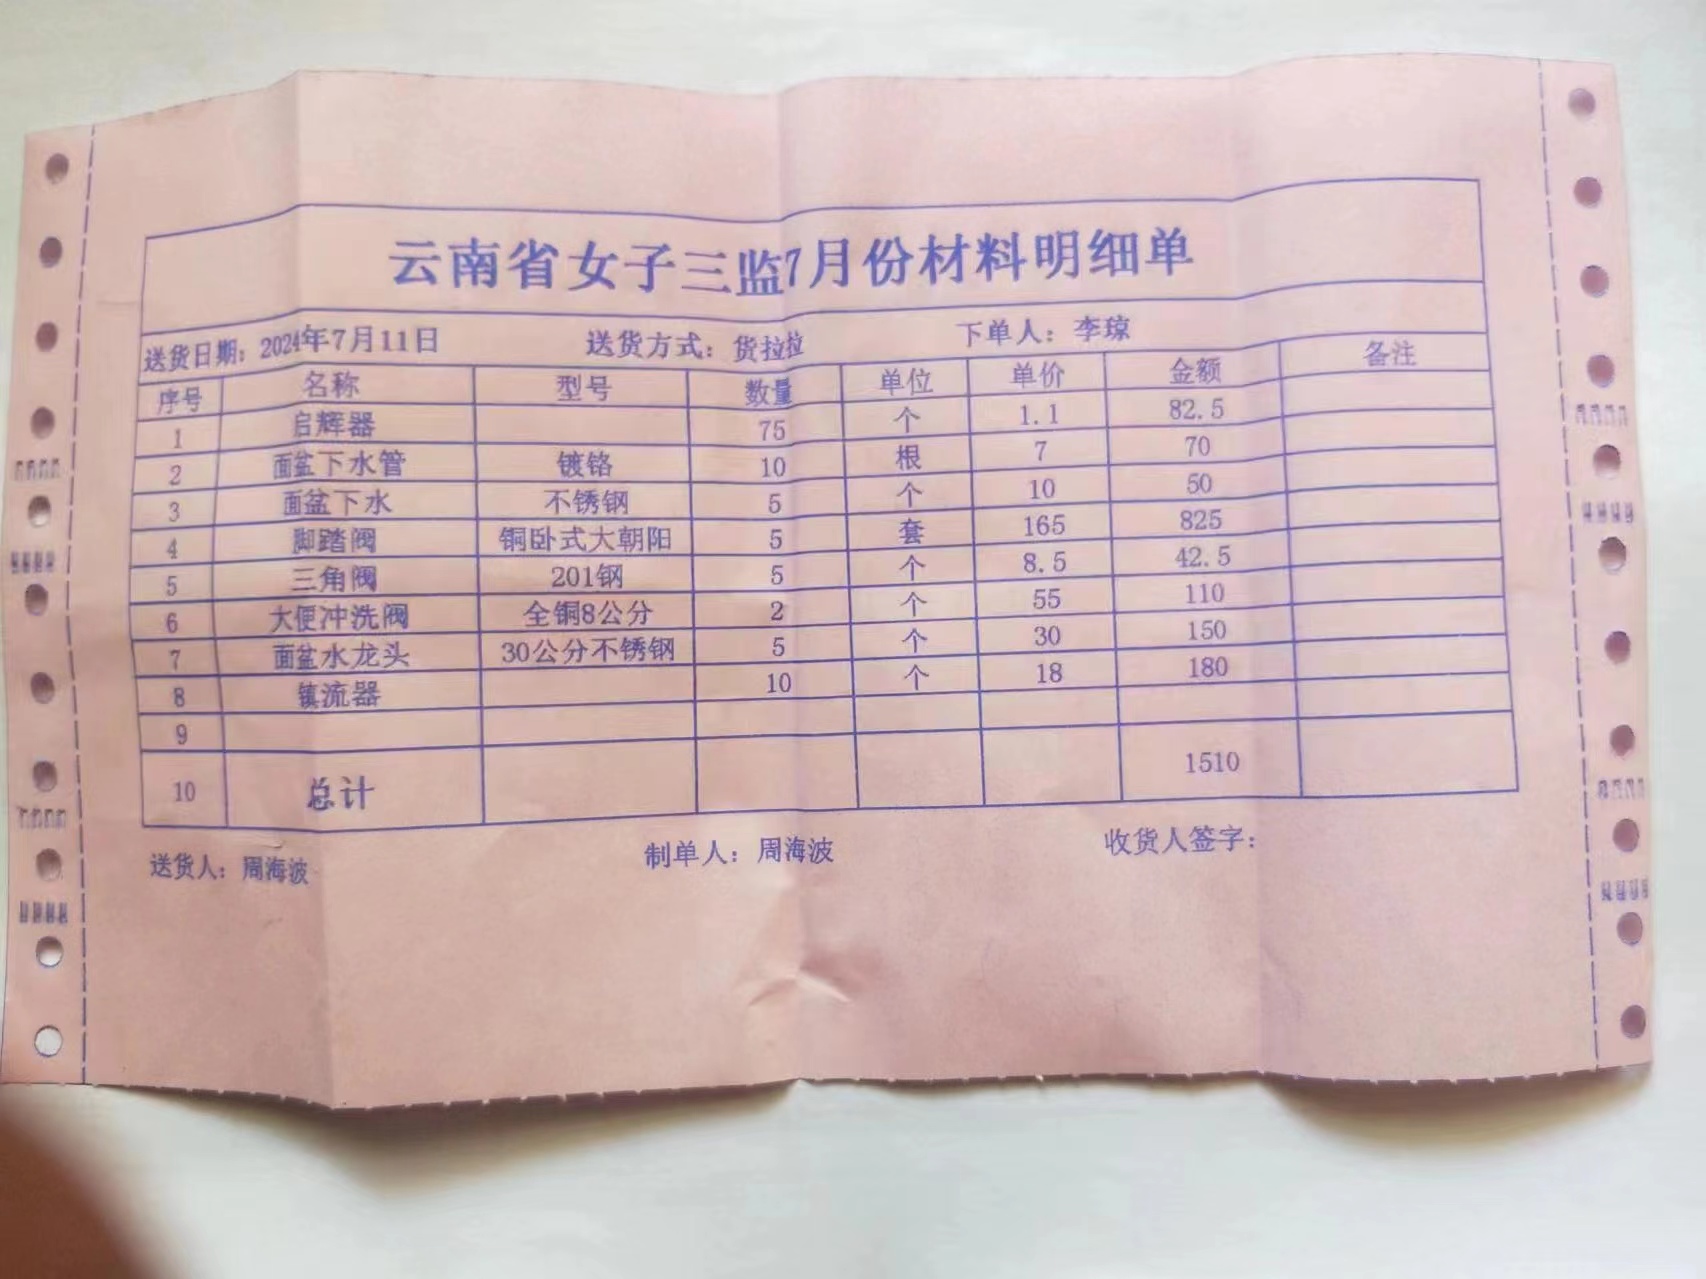 云南省女子三监7月份材料明细单
送货日期：2024年7月11日 送货方式：货拉拉 下单人：李琼
序号 名称 型号 数量 单位 单价 金额 备注
1 启辉器 75 个 1.1 82.5
2 面盆下水管 镀铬 10 根 7 70
3 面盆下水 不锈钢 5 个 10 50
4 脚踏阀 铜卧式大朝阳 5 套 165 825
5 三角阀 201钢 5 个 8.5 42.5
6 大便冲洗阀 全铜8公分 2 个 55 110
7 面盆水龙头 30公分不锈钢 5 个 30 150
8 镇流器 10 个 18 180
9
10 总计 1510
送货人：周海波 制单人：周海波 收货人签字：